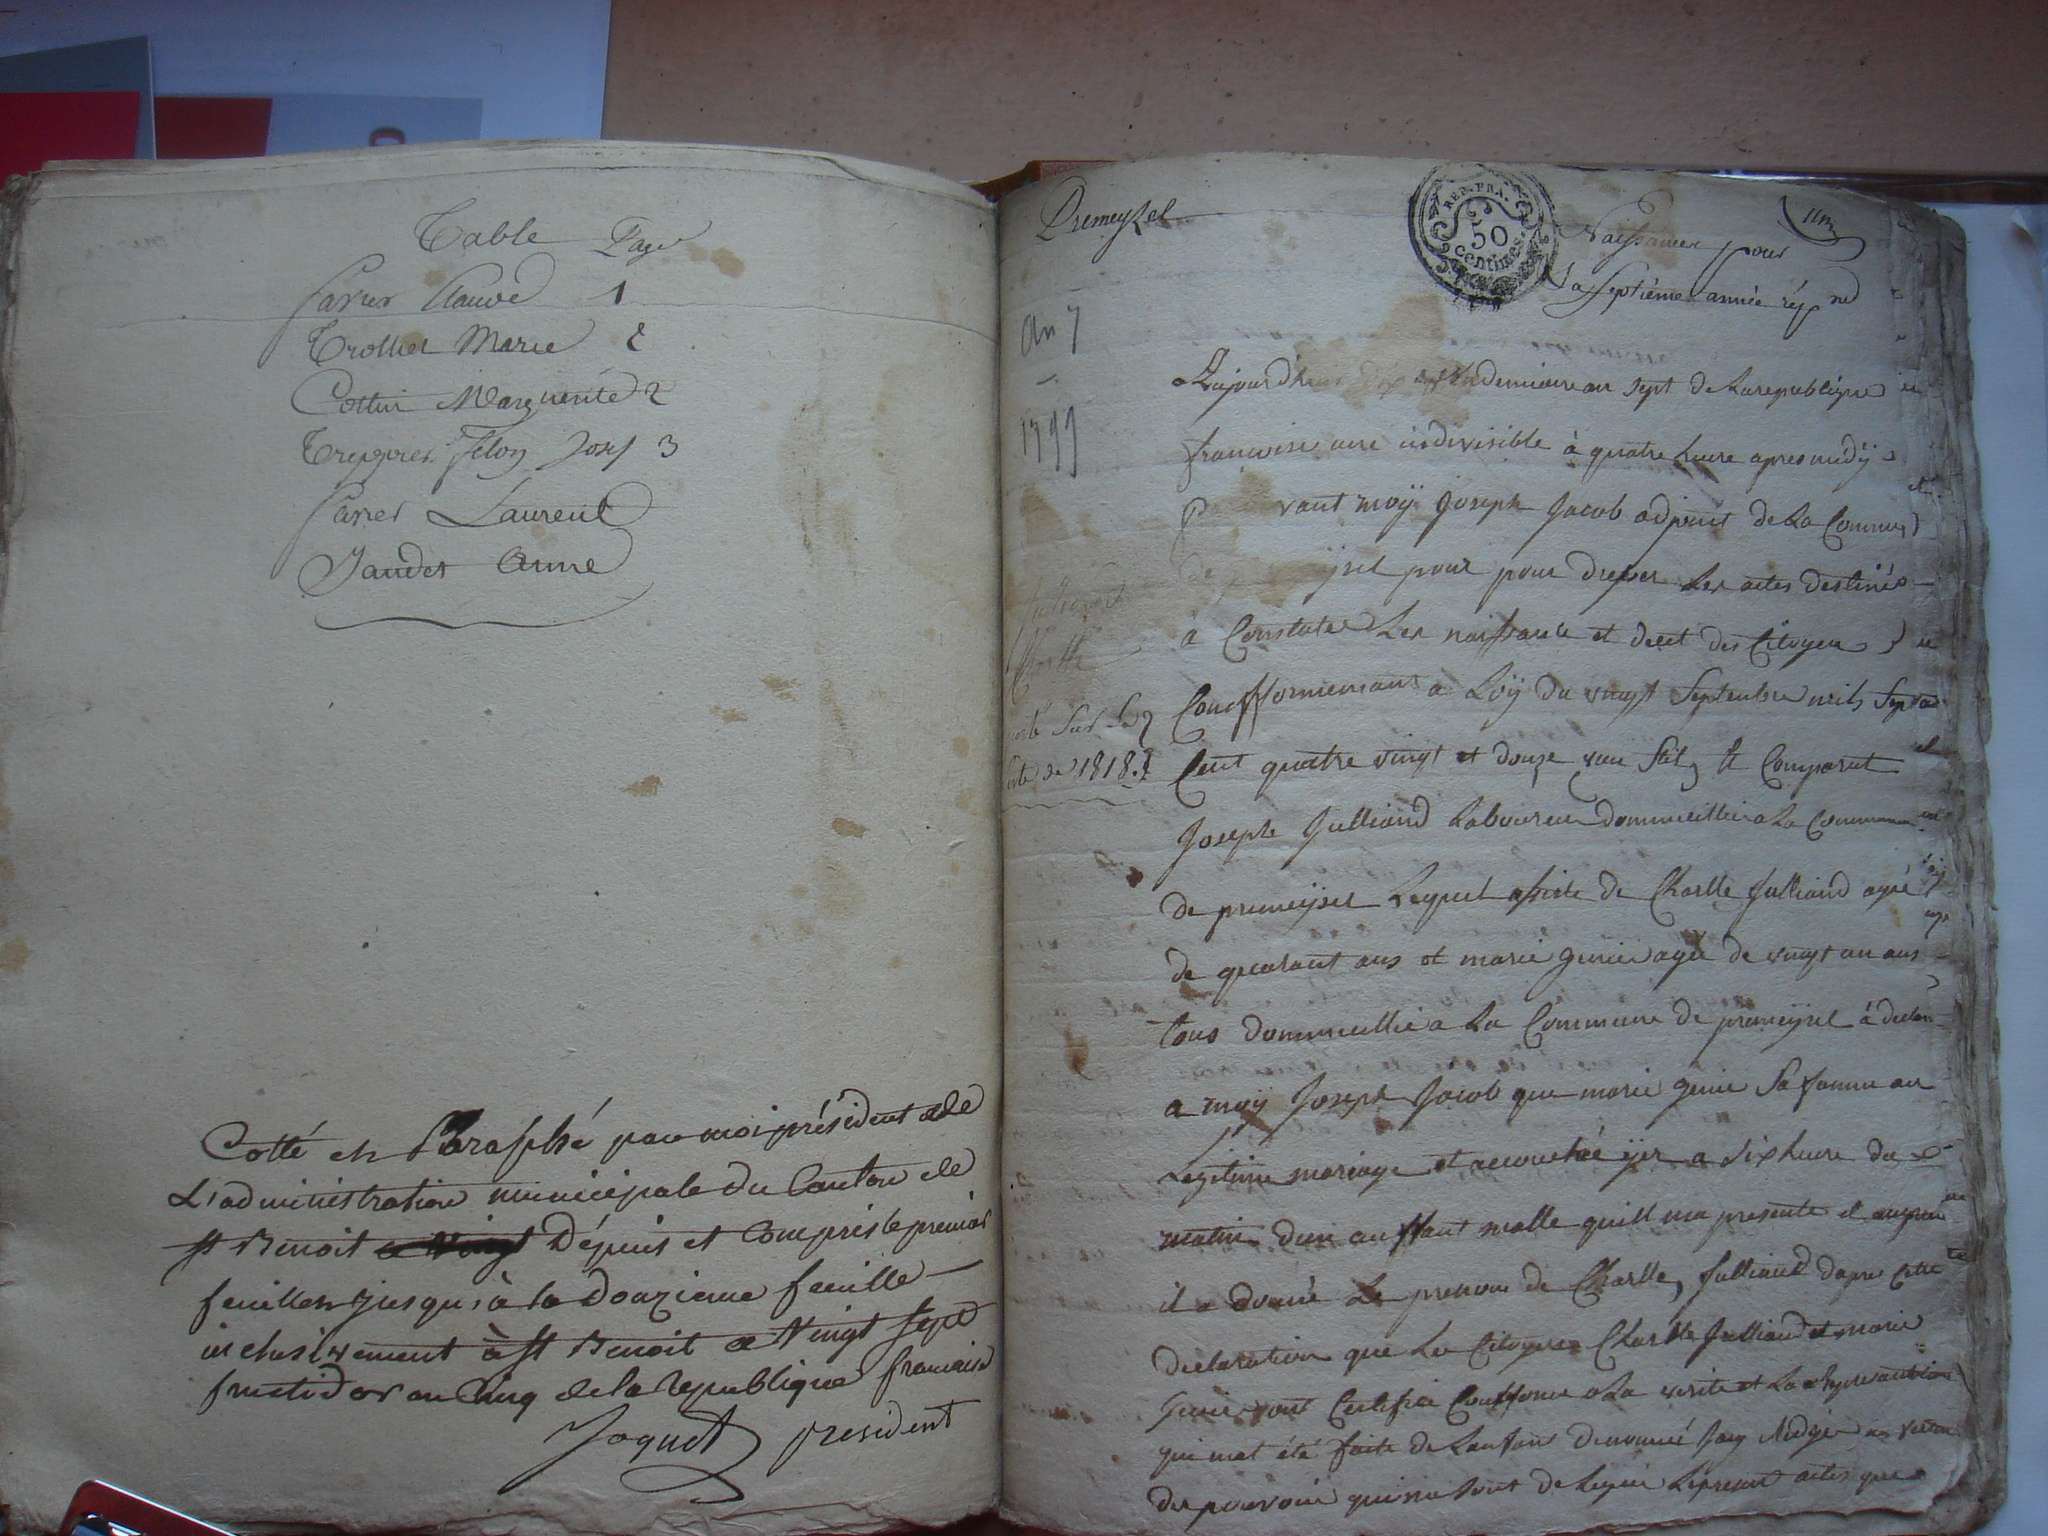 Table Page
Claude 1
Trollier Marie 2
Cottin Marguerite 2
Josef 3
Laurent
Jandet Anne
Cotté et Paraphé par moi président de
L'administration municipale du Canton de
st Benoit Dépuis et Compris le premier
feuillet jusqu'à la Douzieme feuille
inclusivement à st Benoit le Vingt sept
fructidor an Cinq de la republique francaise
Joquet president
Premeyzel
REP. FRA.
50
centimes
Naissances pour
La septiéme année rép
an 7
1799
Aujourd'huit vendemiaire an sept de La republique
francoise une indivisible à quatre heure apres midÿ
vant moÿ Joseph Jacob adjoint de La Commune
pour pour dresser Les actes destiné
à Constater Les naissance et decet des Citoyen
Confformemant a Loÿ du vingt Septembre mils Sept
Cent quatre vingt et douze Comparut
Joseph Julliand Laboureur dommicillié a La Commune
de premeijsel Lequel assiste de Charlle Julliand agé
de quarant ans et marie genin agée de vingt an ans
tous dommicillié a La Commune de premeijsel à declaré
a moÿ Joseph Jacob que marie genin Sa famme an
Legitime mariage et accouchée ÿer a six heure du
matin d'un anffant malle quill ma presente et auquel
il a donné Le prenom de Charlle Julliand dapres Cette
declaration que Le Citoyen Charlle Julliand et marie
genin ont Certifié Confforme a La verite et La representation
qui mat été faite de Lanfant denommé Jay Redige an vertu
des pouvoir qui me sont de Legué Lepresent actes que
de 1818.